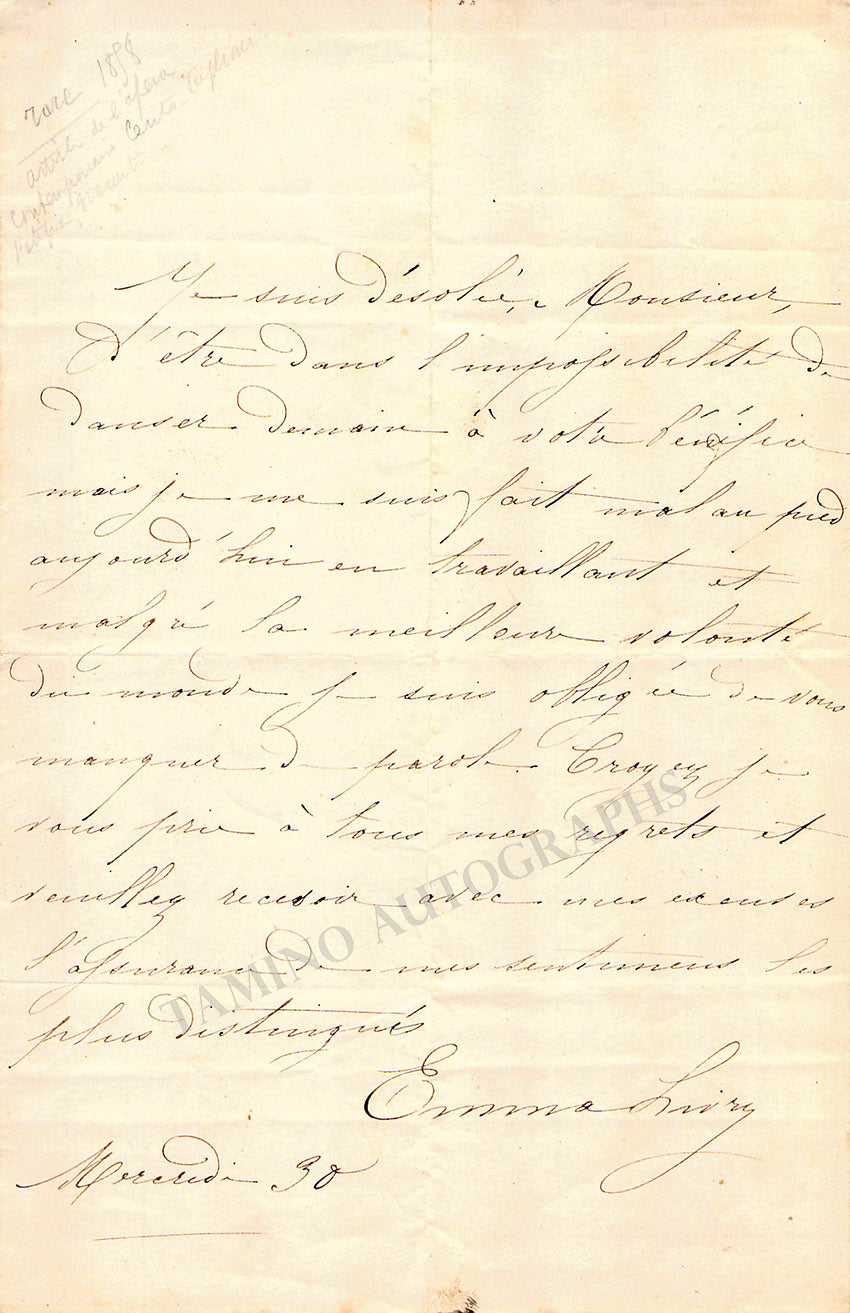 rare 1858
artiste de l'opéra
contemporaine Cerito-Taglioni
Petipa
Je suis désolée, Monsieur,
d'être dans l'impossibilité de
danser demain à votre bénéfice
mais je me suis fait mal au pied
aujourd'hui en travaillant et
malgré la meilleure volonté
du monde je suis obligée de vous
manquer de parole. Croyez je
vous prie à tous mes regrets et
veuillez recevoir avec mes excuses
l'assurance de mes sentimens les
plus distingués
Emma Livry
Mercredi 30
TAMINO AUTOGRAPHS